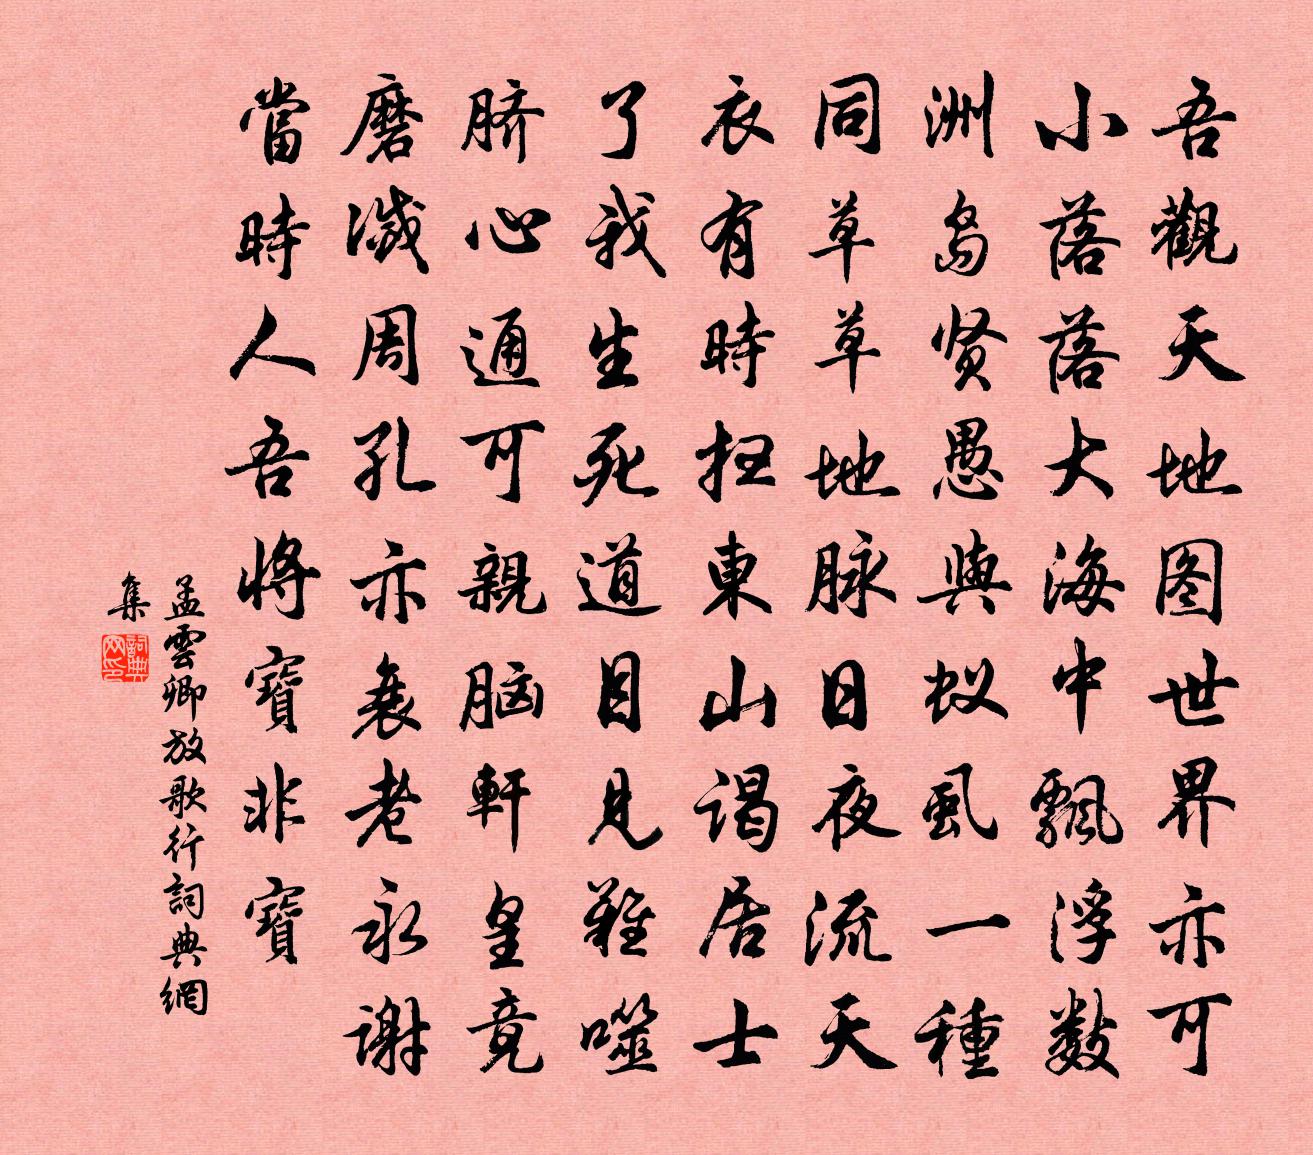 吾觀天地图世界亦可
小落落大海中飄浮数
洲岛贤愚與蚁虱一種
同草草地脉日夜流天
衣有時扫東山谒居士
了我生死道目見難噬
脐心通可親脑軒皇竟
磨滅周孔亦衰老永谢
當時人吾將寶非寶
孟雲卿放歌行詞典網
集